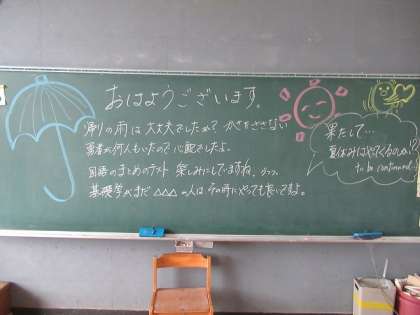 おはようございます。
帰りの雨は大丈夫でしたか? かさをささない
勇者が何人もいたので心配でしたよ。
国語のまとめのテスト 楽しみにしていますね、うふっ。
基礎学がまだ △△△ の人は、その時にやっても良いですよ。
果たして…
夏休みはやってくるのか!?
to be continued